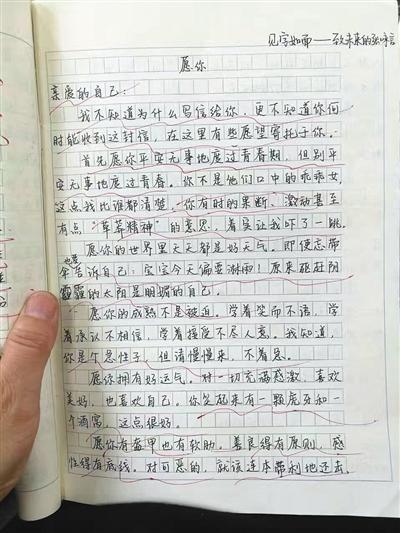 见字如面——致未来的张咏言
愿你
亲爱的自己：
我不知道为什么写信给你，更不知道你何
时能收到这封信，在这里有些愿望寄托于你。
首先愿你平安无事地度过青春期，但别平
安无事地度过青春。你不是他们口中的乖乖女，
这点我比谁都清楚。你有时的果断、激动甚至
有点“草莽精神”的意思，着实让我吓了一跳。
愿你的世界里天天都是好天气。即便忘带
也要
伞告诉自己：宝宝今天偏要淋雨！原来驱赶阴
霾的太阳是明媚的自己。
愿你的成熟不是被迫。学着笑而不语，学
着承认不相信，学着接受不尽人意。我知道，
你是个急性子，但请慢慢来，不着急。
愿你拥有好运气。对一切充满感激，喜欢
美好，也喜欢自己。你笑起来有一颗虎牙和一
个酒窝，这点很好。
愿你有盔甲也有软肋。善良得有原则，感
性得有底线。对可恶的，就该连本带利地还击，